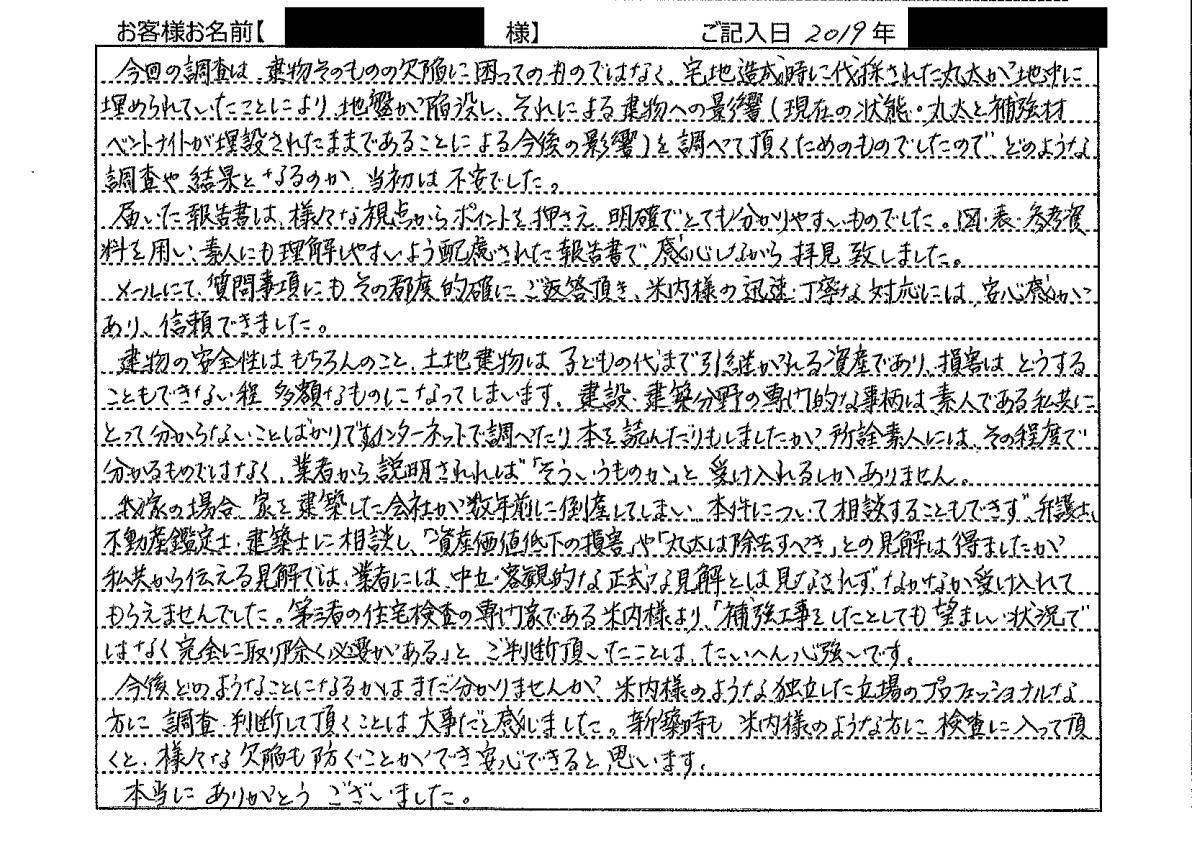 お客様お名前【 様】 ご記入日 2019年
今回の調査は、建物そのものの欠陥に困ってのものではなく、宅地造成時に伐採された丸太が地中に
埋められていたことにより、地盤が陥没し、それによる建物への影響(現在の状態・丸太と補強材
ベントナイトが埋設されたままであることによる今後の影響)を調べて頂くためのものでしたので、どのような
調査や結果となるのか、当初は不安でした。
届いた報告書は、様々な視点からポイントを押さえ、明確でとても分かりやすいものでした。図・表・参考資
料を用い、素人にも理解しやすいよう配慮された報告書で、感心しながら拝見致しました。
メールにて、質問事項にもその都度的確にご返答頂き、米内様の迅速・丁寧な対応には、安心感が
あり、信頼できました。
建物の安全性はもちろんのこと、土地建物は子どもの代まで引き継がれる資産であり、損害はどうする
こともできない程多額なものになってしまいます。建設・建築分野の専門的な事柄は素人である私共に
とって分からないことばかりです。インターネットで調べたり本を読んだりもしましたが、所詮素人には、その程度で
分かるものではなく、業者から説明されれば「そういうものか」と受け入れるしかありません。
我が家の場合、家を建築した会社が数年前に倒産してしまい、本件について相談することもできず、弁護士、
不動産鑑定士、建築士に相談し、「資産価値低下の損害」や「丸太は除去すべき」との見解は得ましたが、
私共から伝える見解では、業者には、中立・客観的な正式な見解とは見なされず、なかなか受け入れて
もらえませんでした。第三者の住宅検査の専門家である米内様より、「補強工事をしたとしても望ましい状況で
はなく完全に取り除く必要がある」とご判断頂いたことは、たいへん心強いです。
今後どのようなことになるかはまだ分かりませんが、米内様のような独立した立場のプロフェッショナルな
方に調査・判断して頂くことは大事だと感じました。新築時も米内様のような方に検査に入って頂
くと、様々な欠陥も防ぐことができ安心できると思います。
本当にありがとうございました。